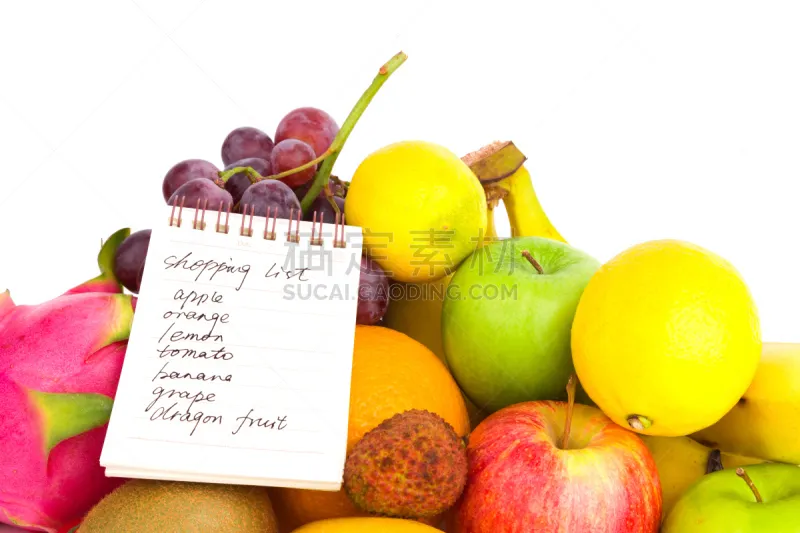 shopping list
apple
orange
lemon
tomato
banana
grape
dragon fruit
搞定素材网
SUCAI.GAODING.COM